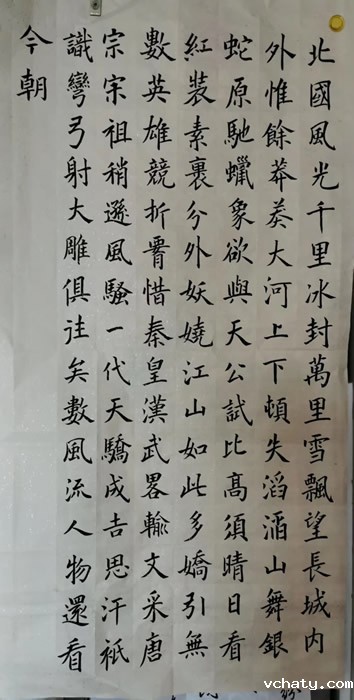 北國風光千里冰封萬里雪飄望長城内
外惟餘莽莽大河上下頓失滔滔山舞銀
蛇原馳蠟象欲與天公試比髙須晴日看
紅裝素裹分外妖嬈江山如此多嬌引無
數英雄競折腰惜秦皇漢武畧輸文采唐
宗宋祖稍遜風騷一代天驕成吉思汗祇
識彎弓射大雕俱往矣數風流人物還看
今朝
vchaty.com